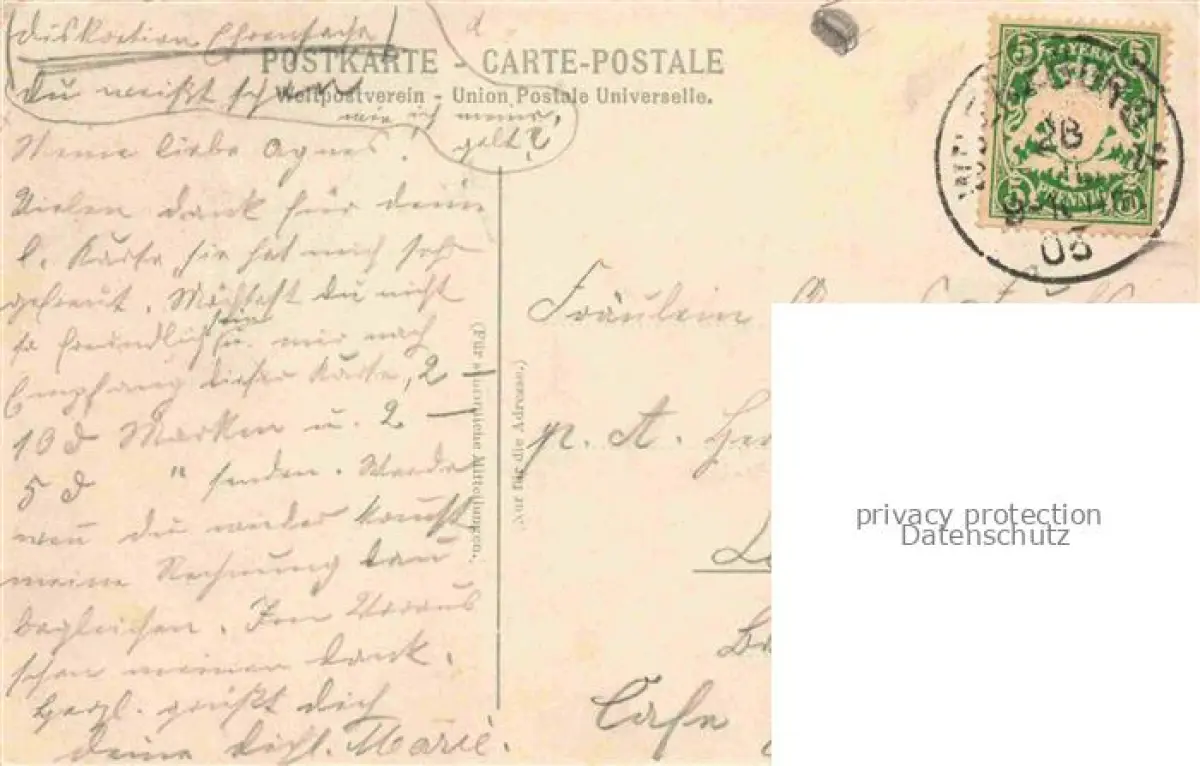 Diskretion Ehrensache
POSTKARTE - CARTE-POSTALE
Du weißt schon
Weltpostverein - Union Postale Universelle.
wie ich meine,
gelt?
Meine liebe Agnes!
Vielen Dank für deine
l. Karte, sie hat mich sehr
gefreut. Möchtest Du nicht
so freundlich sein u. mir nach
Empfang dieser Karte, 2 —
10 d Marken u. 2 —
5 d " senden. Werde
wen du wieder komst
meine Rechnung dan
begleichen. Im Voraus
schon meinen Dank.
Herzl. grüßt dich
deine dichl. Marie.
(Für schriftliche Mitteilungen.)
(Nur für die Adresse.)
5 BAYERN 5
5 PFENNIG 5
28
03
Fräulein
p. A.
Cafe
privacy protection
Datenschutz